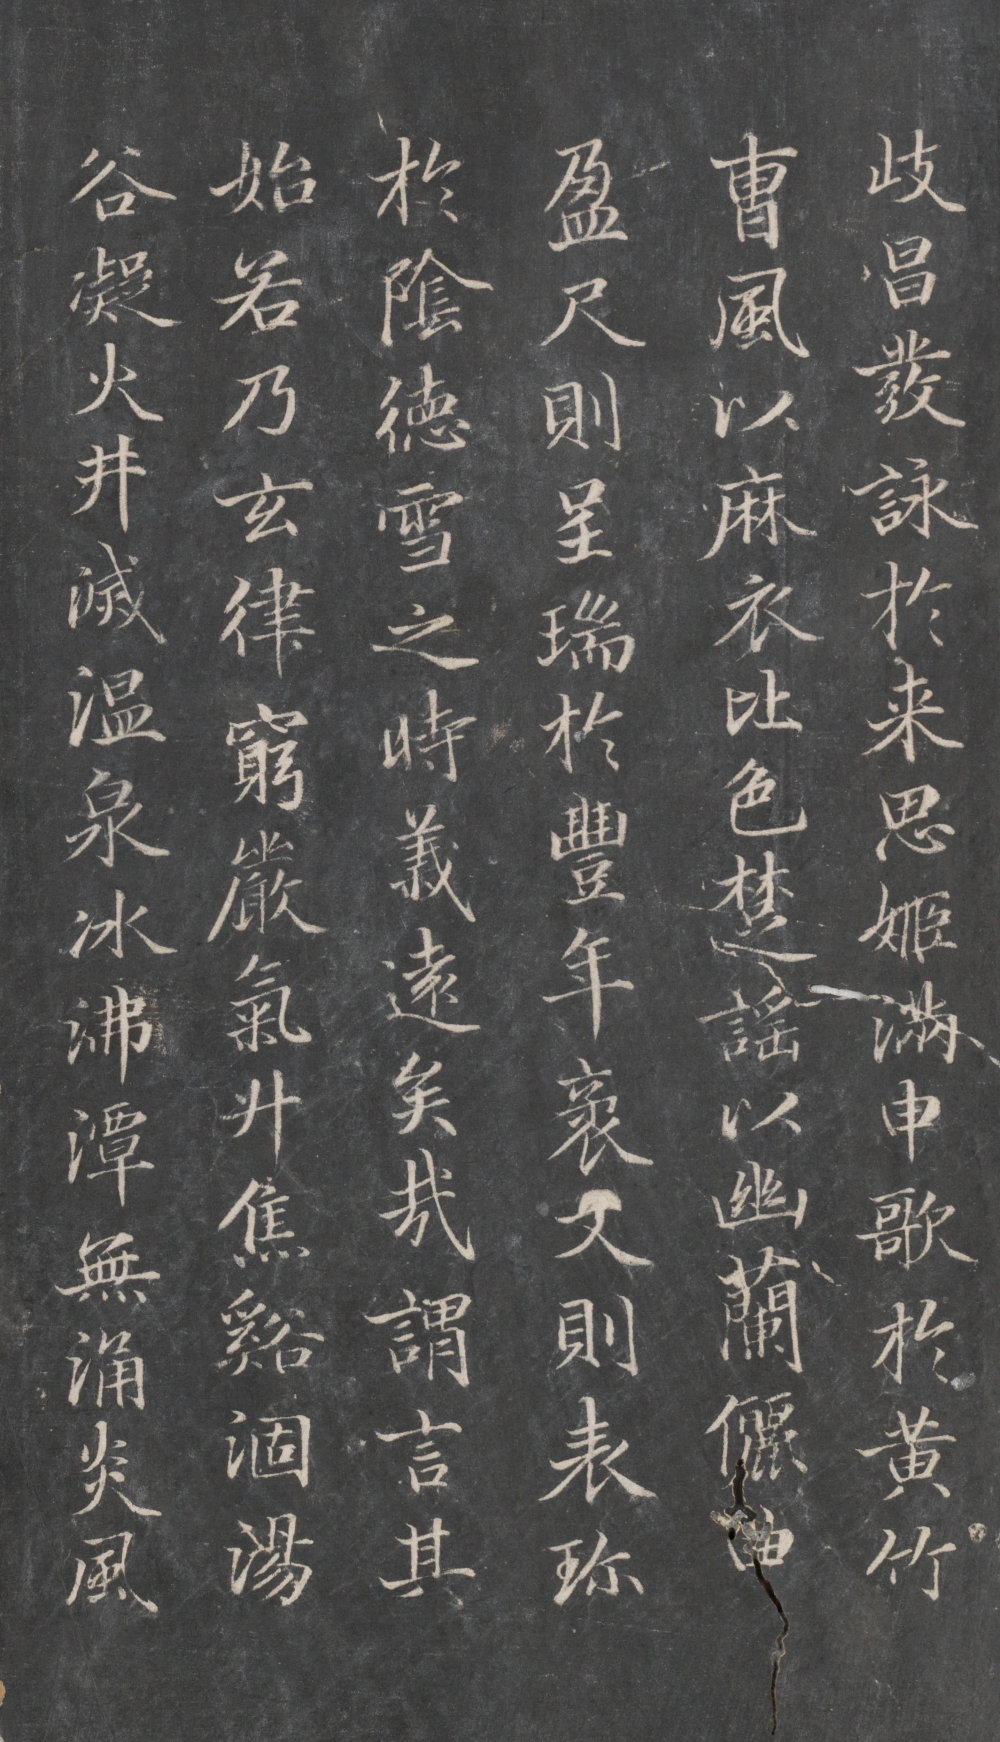 歧昌發詠於来思姬滿申歌於黄竹
曹風以麻衣比色楚謡以幽蘭儷曲
盈尺則呈瑞於豐年袤丈則表珎
於陰德雪之時義遠矣哉謂言其
始若乃玄律窮嚴氣升焦谿涸湯
谷凝火井滅温泉冰沸潭無涌炎風